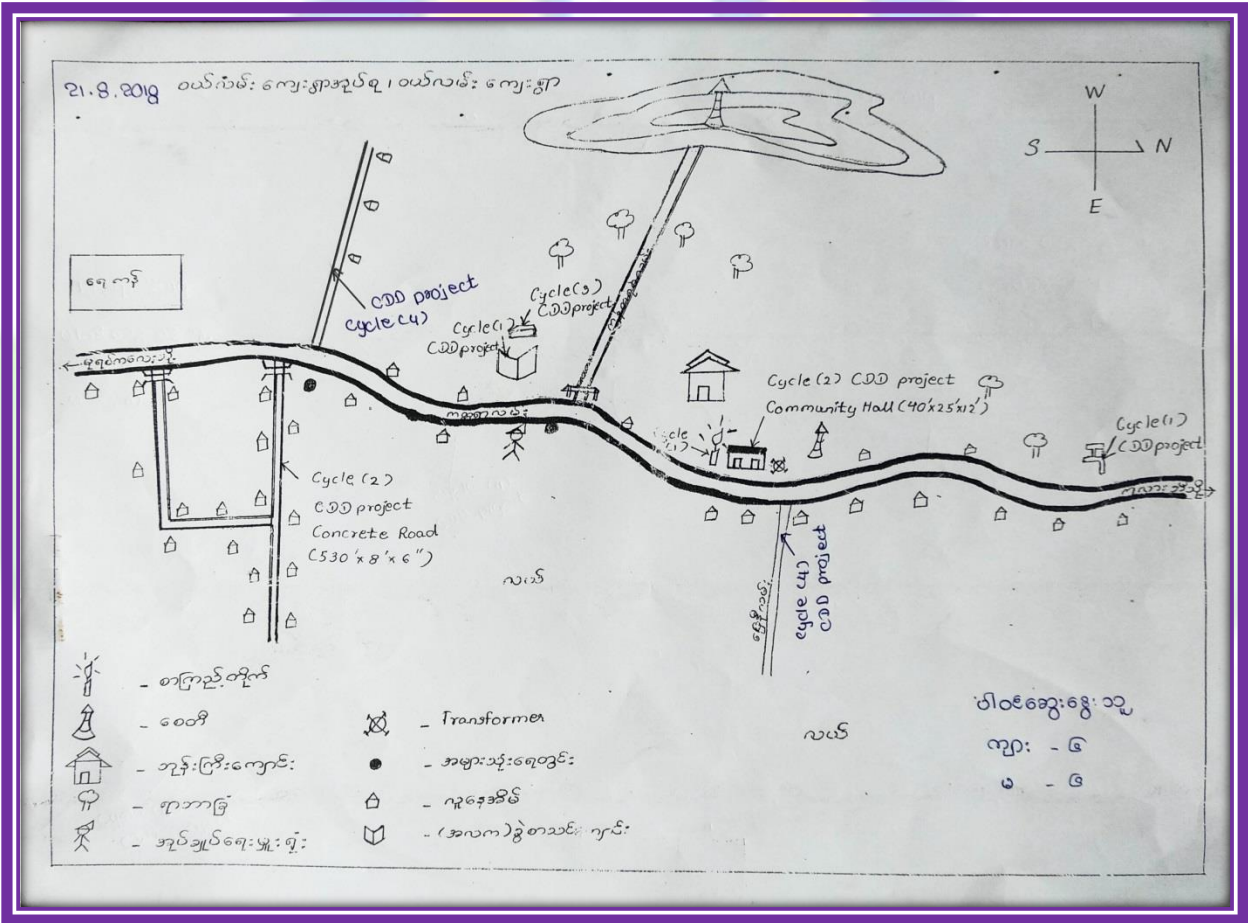 21.8.2018 ဝယ်လမ်း ကျေးရွာအုပ်စု၊ ဝယ်လမ်း ကျေးရွာ
W
S N
E
ရေကန်
CDD project
Cycle (4)
Cycle(3)
CDD project
Cycle(1)
CDD project
Cycle (2) CDD project
Community Hall (40'x25'x12')
Cycle
(1)
Cycle(1)
CDD project
Cycle (2)
CDD project
Concrete Road
(530'x 8'x 6")
လယ်
Cycle (4)
CDD project
လယ်
- စာကြည့်တိုက်
- စေတီ
- ဘုန်းကြီးကျောင်း
- ရာဘာခြံ
- အုပ်ချုပ်ရေးမှူးရုံး
- Transformer
- အများသုံးရေတွင်း
- လူနေအိမ်
- (အလက)ခွဲစာသင်ကျောင်း
ပါဝင်ဆွေးနွေးသူ
ကျား - ၆
မ - ၆